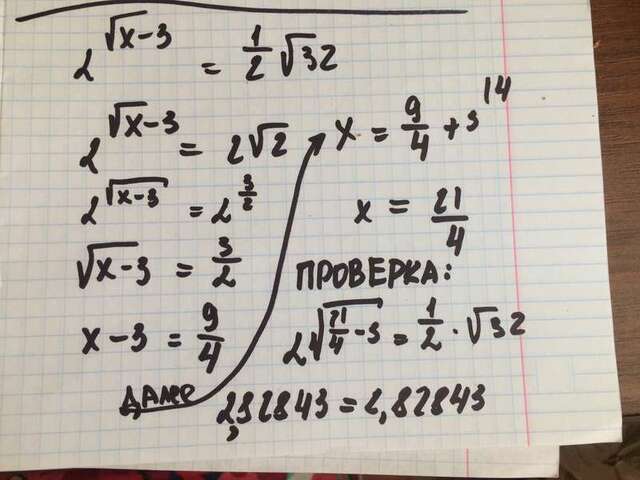 14
2^√(x-3) = 1/2 √32
2^√(x-3) = 2√2
2^√(x-3) = 2^(3/2)
√(x-3) = 3/2
x-3 = 9/4
ДАЛЕЕ
x = 9/4 + 3
x = 21/4
ПРОВЕРКА:
2^√(21/4 - 3) = 1/2 · √32
2,82843 = 2,82843